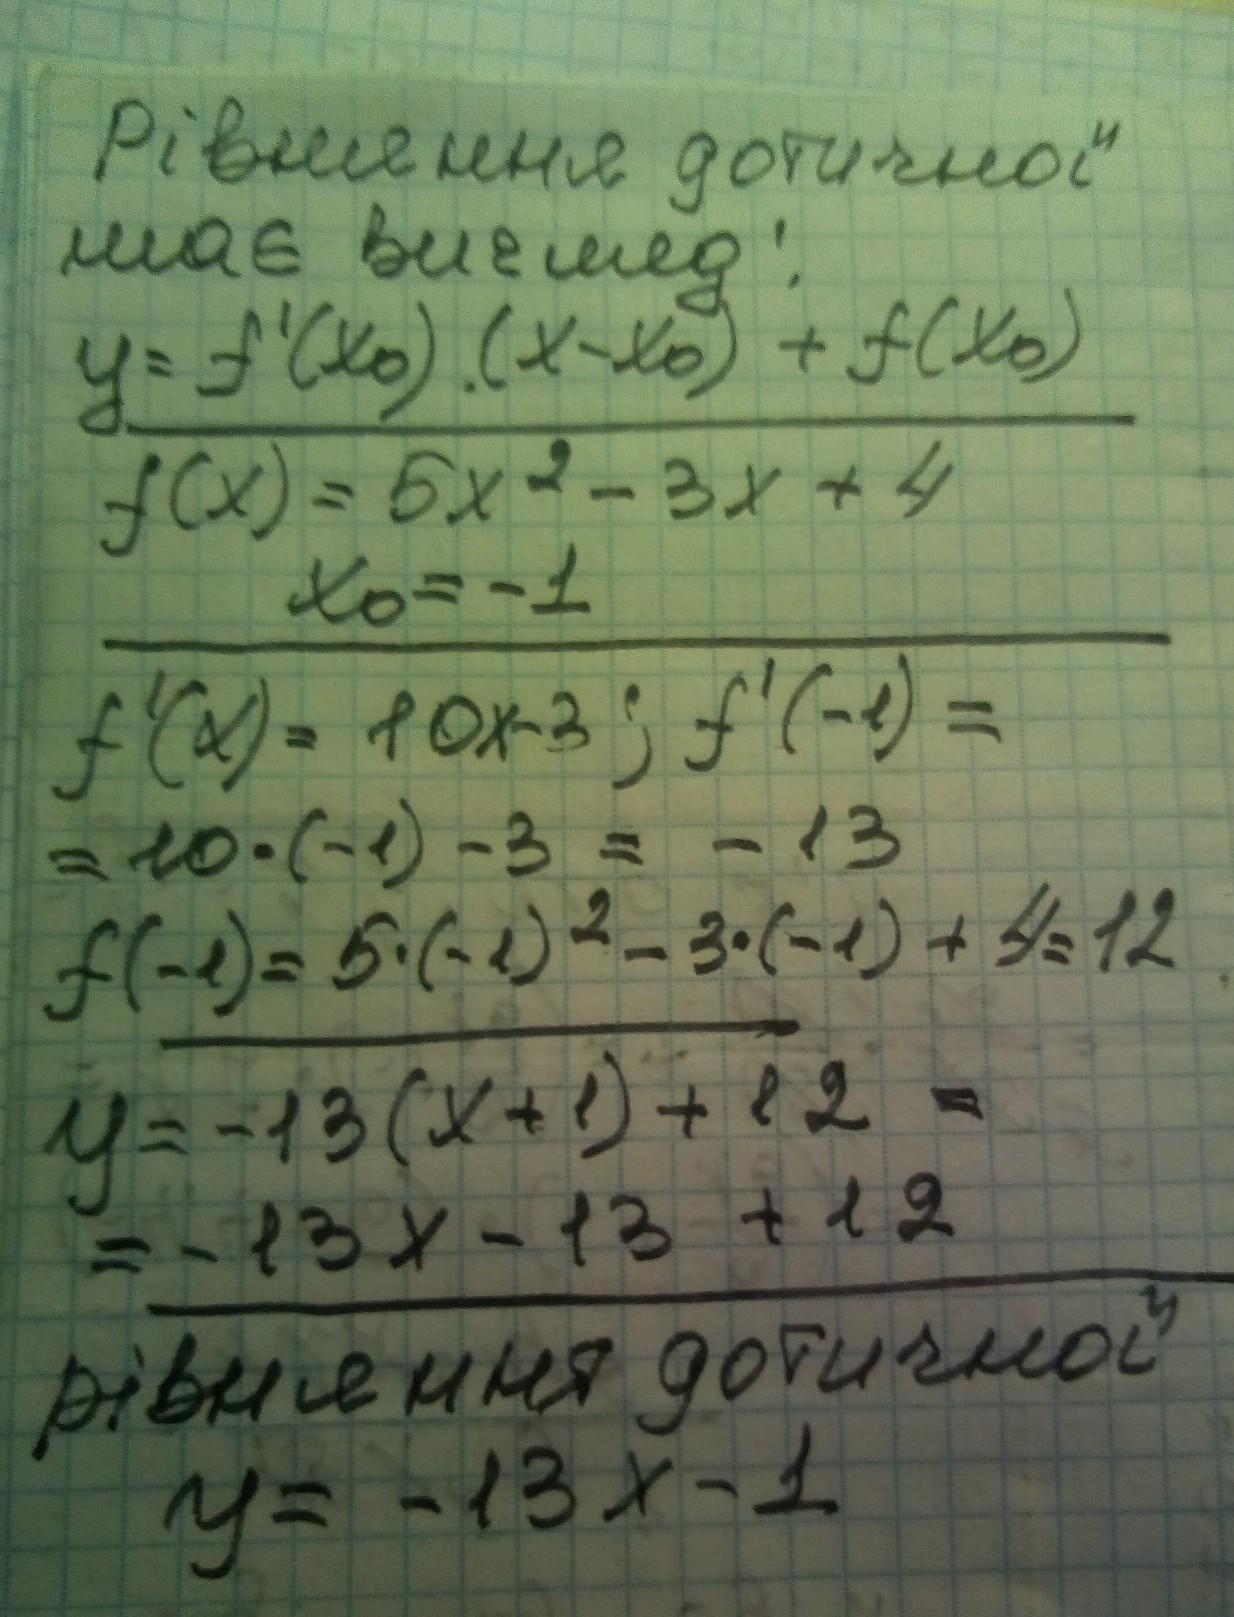 Рівняння дотичної
має вигляд:
y = f'(x₀) · (x - x₀) + f(x₀)
f(x) = 5x² - 3x + 4
x₀ = -1
f'(x) = 10x - 3; f'(-1) =
= 10 · (-1) - 3 = -13
f(-1) = 5·(-1)² - 3·(-1) + 4 = 12
y = -13(x + 1) + 12 =
= -13x - 13 + 12
рівняння дотичної
y = -13x - 1